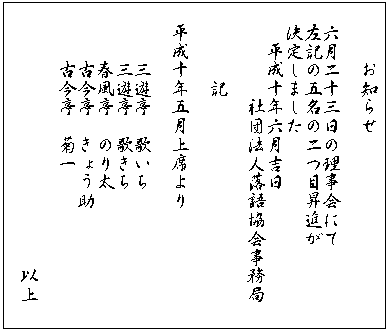 お知らせ
六月二十三日の理事会にて
左記の五名の二つ目昇進が
決定しました
平成十年六月吉日
社団法人落語協会事務局
記
平成十年五月上席より
三遊亭　歌いち
三遊亭　歌きち
春風亭　のり太
古今亭　きょう助
古今亭　菊一
以上